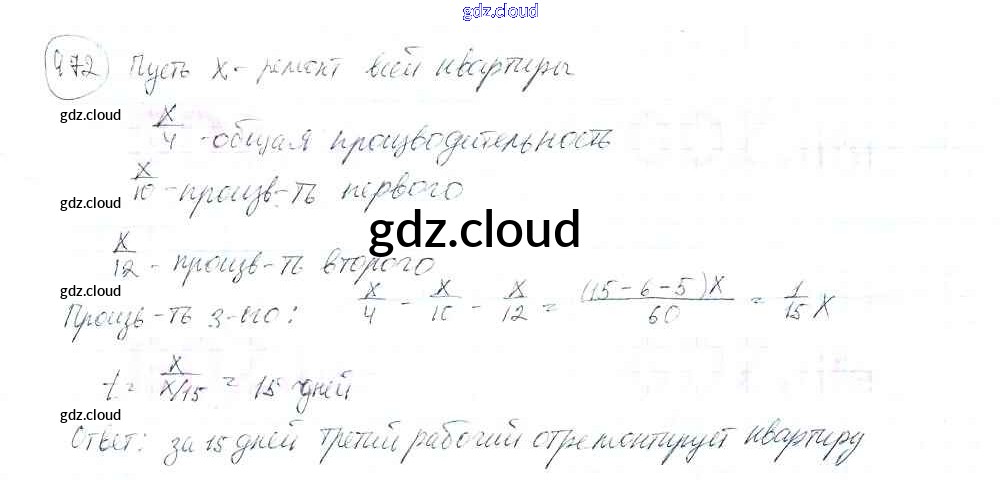 gdz.cloud
972 Пусть x - ремонт всей квартиры
gdz.cloud
x/4 - общая производительность
x/10 - произв-ть первого
gdz.cloud
gdz.cloud
x/12 - произв-ть второго
gdz.cloud
Произв-ть 3-его: x/4 - x/10 - x/12 = (15 - 6 - 5)x/60 = 1/15 x
t = x/x/15 = 15 дней
gdz.cloud
Ответ: за 15 дней третий рабочий отремонтирует квартиру